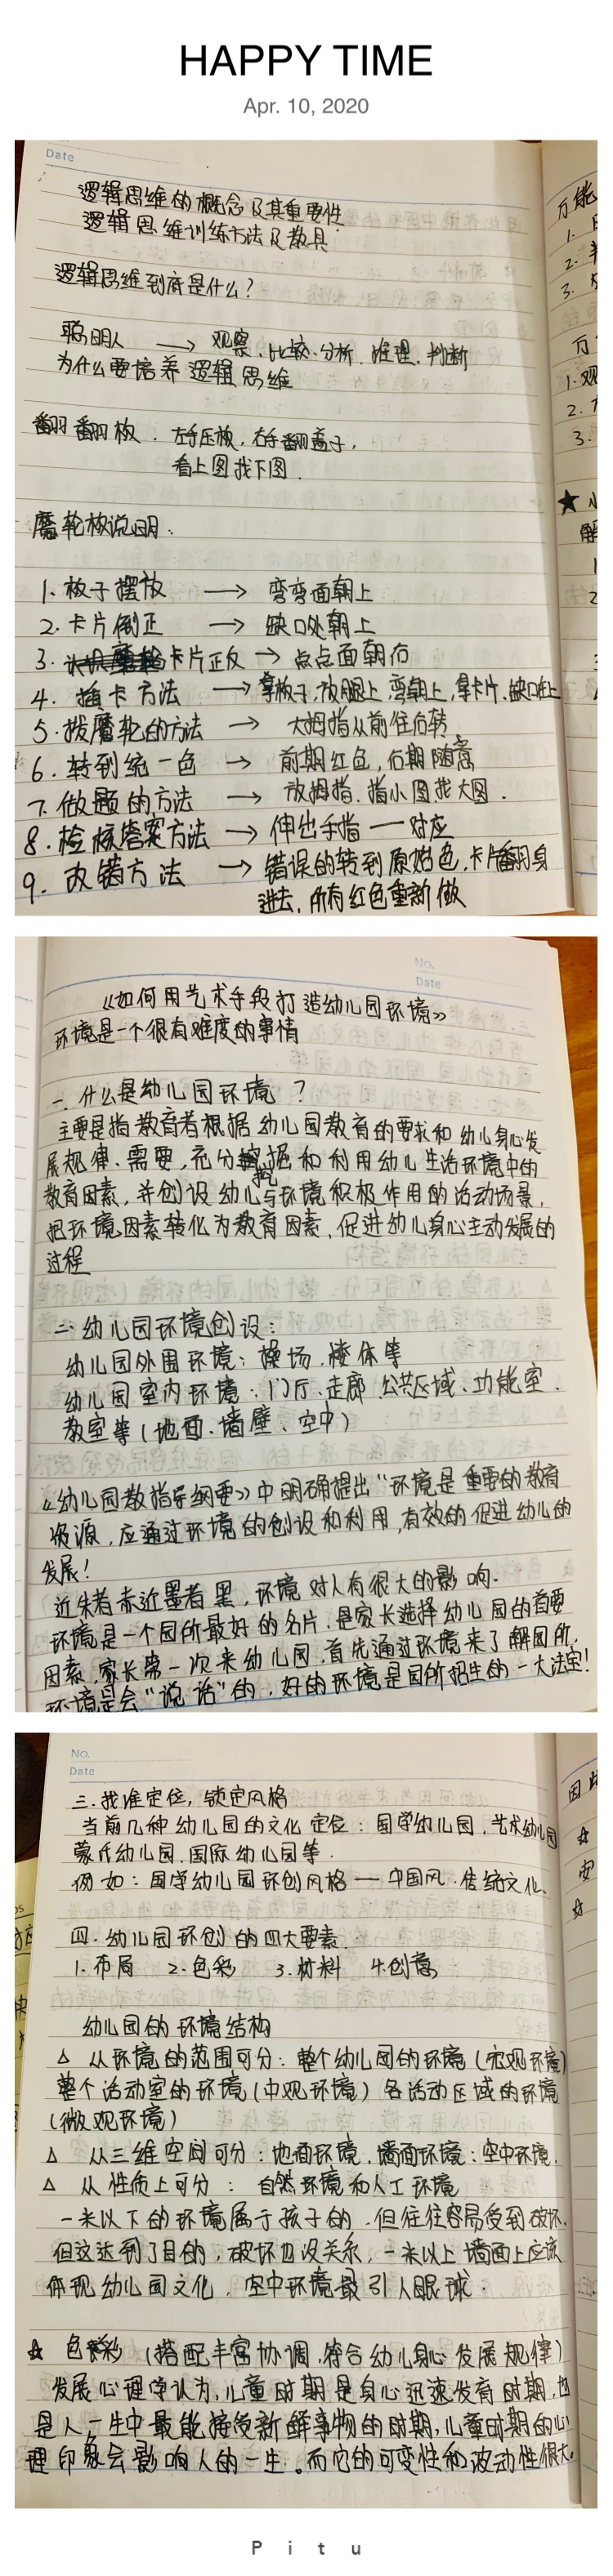 HAPPY TIME
Apr. 10, 2020
Date
逻辑思维的概念及其重要性
逻辑思维训练方法及教具
逻辑思维到底是什么?
聪明人 → 观察、比较、分析、推理、判断
为什么要培养逻辑思维
翻翻板:左手压板,右手翻盖子,
看上图找下图.
魔轮板说明:
1. 板子摆放 → 弯弯面朝上
2. 卡片倒正 → 缺口处朝上
3. 卡片正反 → 点点面朝右
4. 插卡方法 → 拿板子,放腿上,弯朝上,拿卡片,缺口在上
5. 拨魔轮的方法 → 大拇指从前往后转
6. 转到统一色 → 前期红色,后期随意
7. 做题的方法 → 放拇指.指小图找大图.
8. 检核答案方法 → 伸出手指一一对应
9. 改错方法 → 错误的转到原始色,卡片翻身
进去,所有红色重新做
万能
1.
2.
3.
万
1.观
2.
3.
★ 小
解
1
2
No.
Date
《如何用艺术手段打造幼儿园环境》
环境是一个很有难度的事情
一.什么是幼儿园环境 ?
主要是指教育者根据幼儿园教育的要求和幼儿身心发
展规律、需要,充分挖掘和利用幼儿生活环境中的
教育因素,并创设幼儿与环境积极作用的活动场景,
把环境因素转化为教育因素,促进幼儿身心主动发展的
过程
二.幼儿园环境创设:
幼儿园外围环境:操场.楼体等
幼儿园室内环境:门厅、走廊.公共区域、功能室.
教室等(地面、墙壁、空中)
《幼儿园教指导纲要》中明确提出“环境是重要的教育
资源,应通过环境的创设和利用,有效的促进幼儿的
发展!
近朱者赤近墨者黑,环境对人有很大的影响.
环境是一个园所最好的名片.是家长选择幼儿园的首要
因素.家长第一次来幼儿园,首先通过环境来了解园所,
环境是会“说话”的,好的环境是园所招生的一大法宝!
No.
Date
三.找准定位,锁定风格
当前几种幼儿园的文化定位:国学幼儿园.艺术幼儿园
蒙氏幼儿园.国际幼儿园等.
例如:国学幼儿园环创风格——中国风.传统文化.
四.幼儿园环创的四大要素.
1.布局 2.色彩 3.材料 4.创意
幼儿园的环境结构
△ 从环境的范围可分:整个幼儿园的环境(宏观环境)
整个活动室的环境(中观环境)各活动区域的环境
(微观环境)
△ 从三维空间可分:地面环境.墙面环境:空中环境.
△ 从性质上可分: 自然环境和人工环境
一米以下的环境属于孩子的.但往往容易受到破坏.
但这达到了目的,破坏也没关系,一米以上墙面上应该
体现幼儿园文化,空中环境最引人眼球.
☆ 色彩(搭配丰富协调.符合幼儿身心发展规律)
发展心理学认为,儿童时期是身心迅速发育时期,也
是人一生中最能接受新鲜事物的时期,儿童时期的心
理印象会影响人的一生.。而它的可变性和波动性很大.
因此
☆
安
☆
Pitu